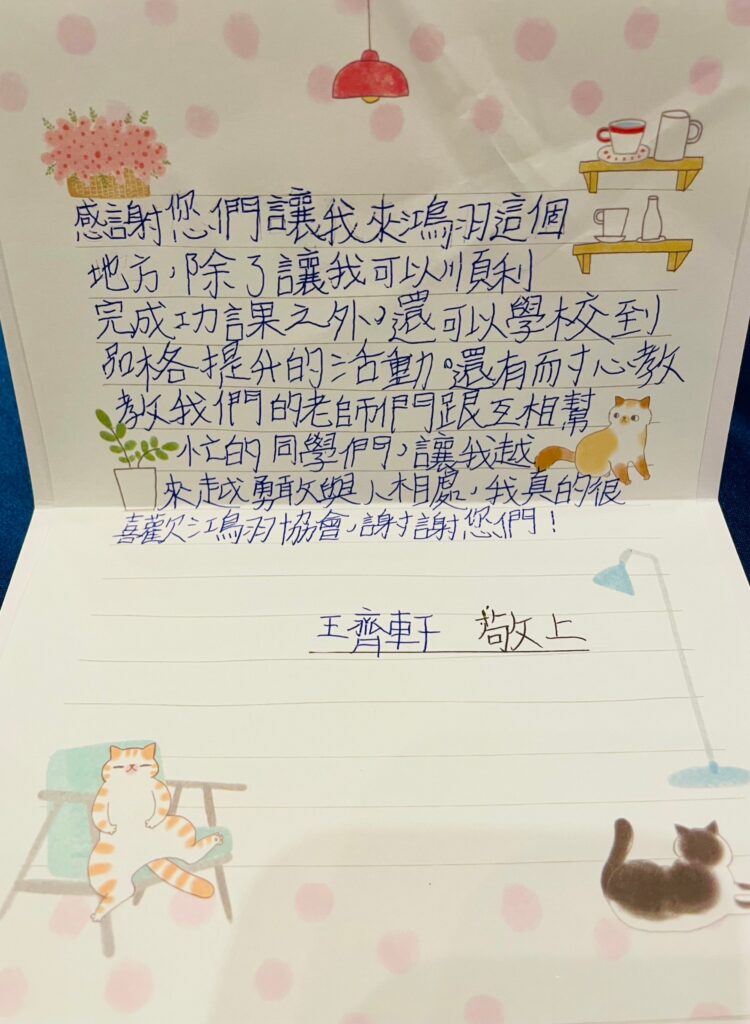 感謝您們讓我來鴻羽這個
地方,除了讓我可以順利
完成功課之外。還可以學校到
品格提升的活動。還有耐心教
教我們的老師們跟互相幫
忙的同學們,讓我越
來越勇敢與人相處,我真的很
喜歡鴻羽協會,謝謝您們!
王齊軒 敬上